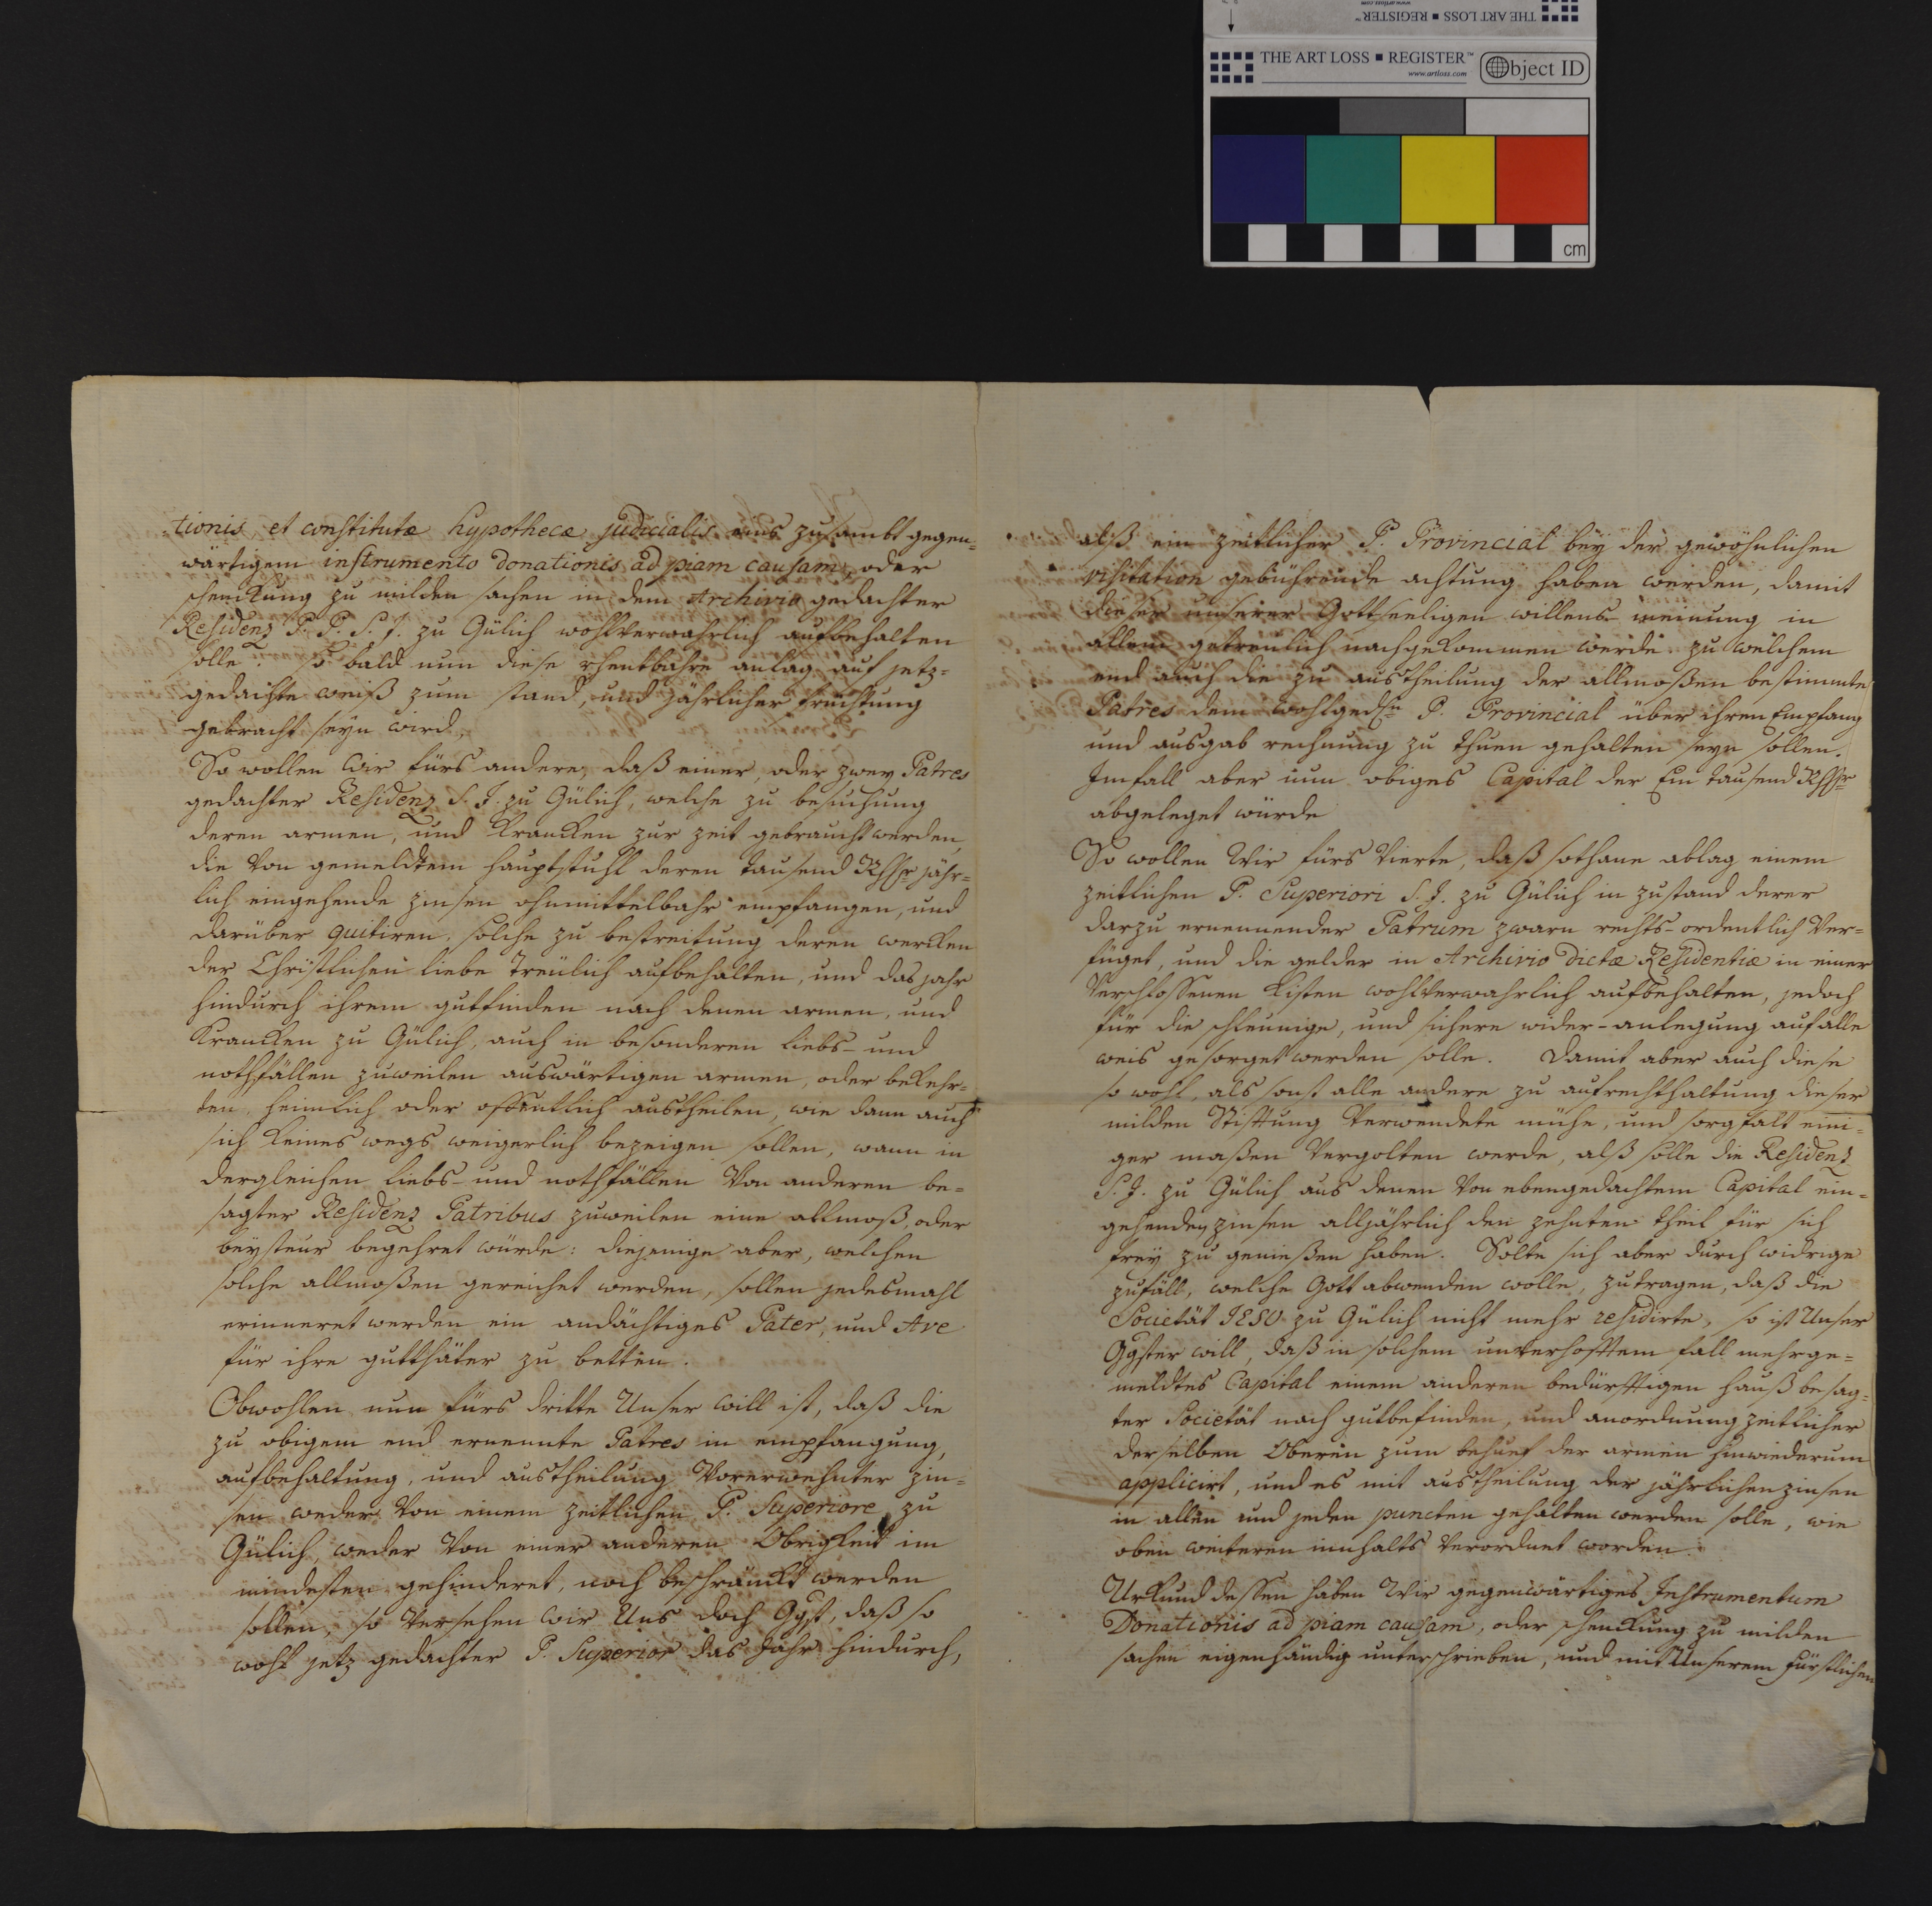 THE ART LOSS ■ REGISTER™
www.artloss.com
THE ART LOSS ■ REGISTER™
www.artloss.com
Object ID
cm
tionis et constitutæ hypothecæ judicialis eins zusambt gegen-
wärtigem instrumento donationis ad piam causam, oder
schenckung zu milden sachen in dem Archivio gedachter
Residenz P. P. S. J. zu Gülich wohlverwahrlich aufbehalten
solle. So bald nun diese rhentbahre anlag auf jetz-
gedachte weiß zum stand, und jährlicher fruchtung
gebracht seyn wird,
So wollen Wir fürs andere, daß einer, oder zwey Patres
gedachter Residenz S. J. zu Gülich, welche zu besuchung
deren armen, und krancken zur zeit gebraucht werden,
die von gemeldtem hauptstuhl deren tausend Rthlr jähr-
lich eingehende zinsen ohnmittelbahr empfangen, und
darüber quitiren, solche zu bestreitung deren wercken
der Christlichen liebe treulich aufbehalten, und das jahr
hindurch ihrem gutfinden nach denen armen, und
krancken zu Gülich, auch in besonderen liebs- und
nothfällen zuweilen auswärtigen armen, oder bekehr-
ten, heimlich oder offentlich austheilen, wie dann auch
sich keines wegs weigerlich bezeigen sollen, wann in
dergleichen liebs- und nothfällen von anderen be-
sagter Residenz Patribus zuweilen eine allmoß, oder
beysteur begehret würde: diejenige aber, welchen
solche allmoßen gereichet werden, sollen jedesmahl
erinneret werden ein andächtiges Pater, und Ave
für ihre gutthäter zu betten.
Obwohlen nun fürs dritte Unser will ist, daß die
zu obigem end ernennte Patres in empfangung,
aufbehaltung, und austheilung vorerwehnter zin-
sen weder von einem zeitlichen P. Superiore zu
Gülich, weder von einer anderen Obrigkeit im
mindesten gehinderet, noch beschränckt werden
sollen, so versehen wir Uns doch Ggst, daß so
wohl jetz gedachter P. Superior das Jahr hindurch,
alß ein zeitlicher P. Provincial bey der gewöhnlichen
visitation gebührende achtung haben werden, damit
dieser unserer Gottseeligen willens-meinung in
allem getreulich nachgekommen werde zu welchem
end auch die zu austheilung der allmoßen bestimmte
Patres dem wohlgedhn P. Provincial über ihren Empfang
und ausgab rechnung zu thuen gehalten seyn sollen.
Imfall aber nun obiges Capital der Ein tausend Rthlr
abgeleget würde
So wollen Wir fürs vierte, daß sothane ablag einem
zeitlichen P. Superiori S. J. zu Gülich in zustand derer
darzu ernennender Patrum zwarn rechts-ordentlich ver-
füget, und die gelder in Archivio dictæ Residentiæ in einer
verschlossenen kisten wohlverwahrlich aufbehalten, jedoch
für die schleunige, und sichere wider-anlegung auf alle
weis gesorget werden solle. Damit aber auch diese
so wohl, als sonst alle andere zu aufrechthaltung dieser
milden Stiftung verwendete mühe, und sorgfalt eini-
ger maßen vergolten werde, alß solle die Residenz
S. J. zu Gülich aus denen von ebengedachtem Capital ein-
gehenden zinsen alljährlich den zehnten theil für sich
frey zu genießen haben. Solte sich aber durch widrige
zufäll, welche Gott abwenden wolle, zutragen, daß die
Societät JESU zu Gülich nicht mehr residirte, so ist Unser
Ggster will, daß in solchem unverhofftem fall mehrge-
meldtes Capital einem anderen bedürfftigen hauß besag-
ter Societät nach gutbefinden, und anordnung zeitlicher
derselben Oberen zum behuef der armen hinwiederum
applicirt, und es mit austheilung der jährlichen zinsen
in allen und jeden puncten gehalten werden solle, wie
oben weiteren innhalts verordnet worden.
Urkund dessen haben Wir gegenwärtiges Instrumentum
Donationis ad piam causam, oder schenckung zu milden
sachen eigenhändig unterschrieben, und mit Unserem fürstlichen